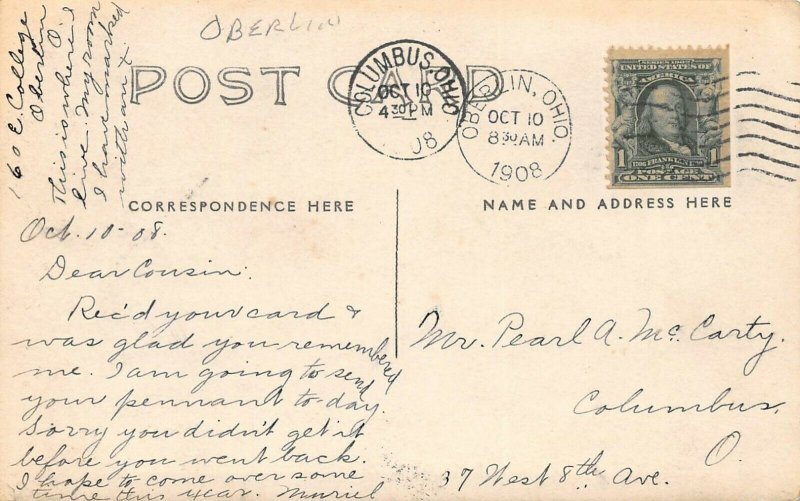 OBERLIN
160 E. College
Oberlin
O.
This is where I
live. My room
I have marked
with an x
POST CARD
COLUMBUS, OHIO
OCT 10
430 PM
08
OBERLIN, OHIO.
OCT 10
830 AM
1908
SERIES 1902
UNITED STATES OF
AMERICA
1706 FRANKLIN 1790
1 1
POSTAGE
ONE CENT
CORRESPONDENCE HERE
NAME AND ADDRESS HERE
Oct. 10-08.
Dear Cousin:
Rec'd your card &
was glad you remembered
me. I am going to send
your pennant to-day.
Sorry you didn't get it
before you went back.
I hope to come over some
time this year. Muriel
Mr. Pearl A. McCarty.
Columbus,
O.
37 West 8th Ave.